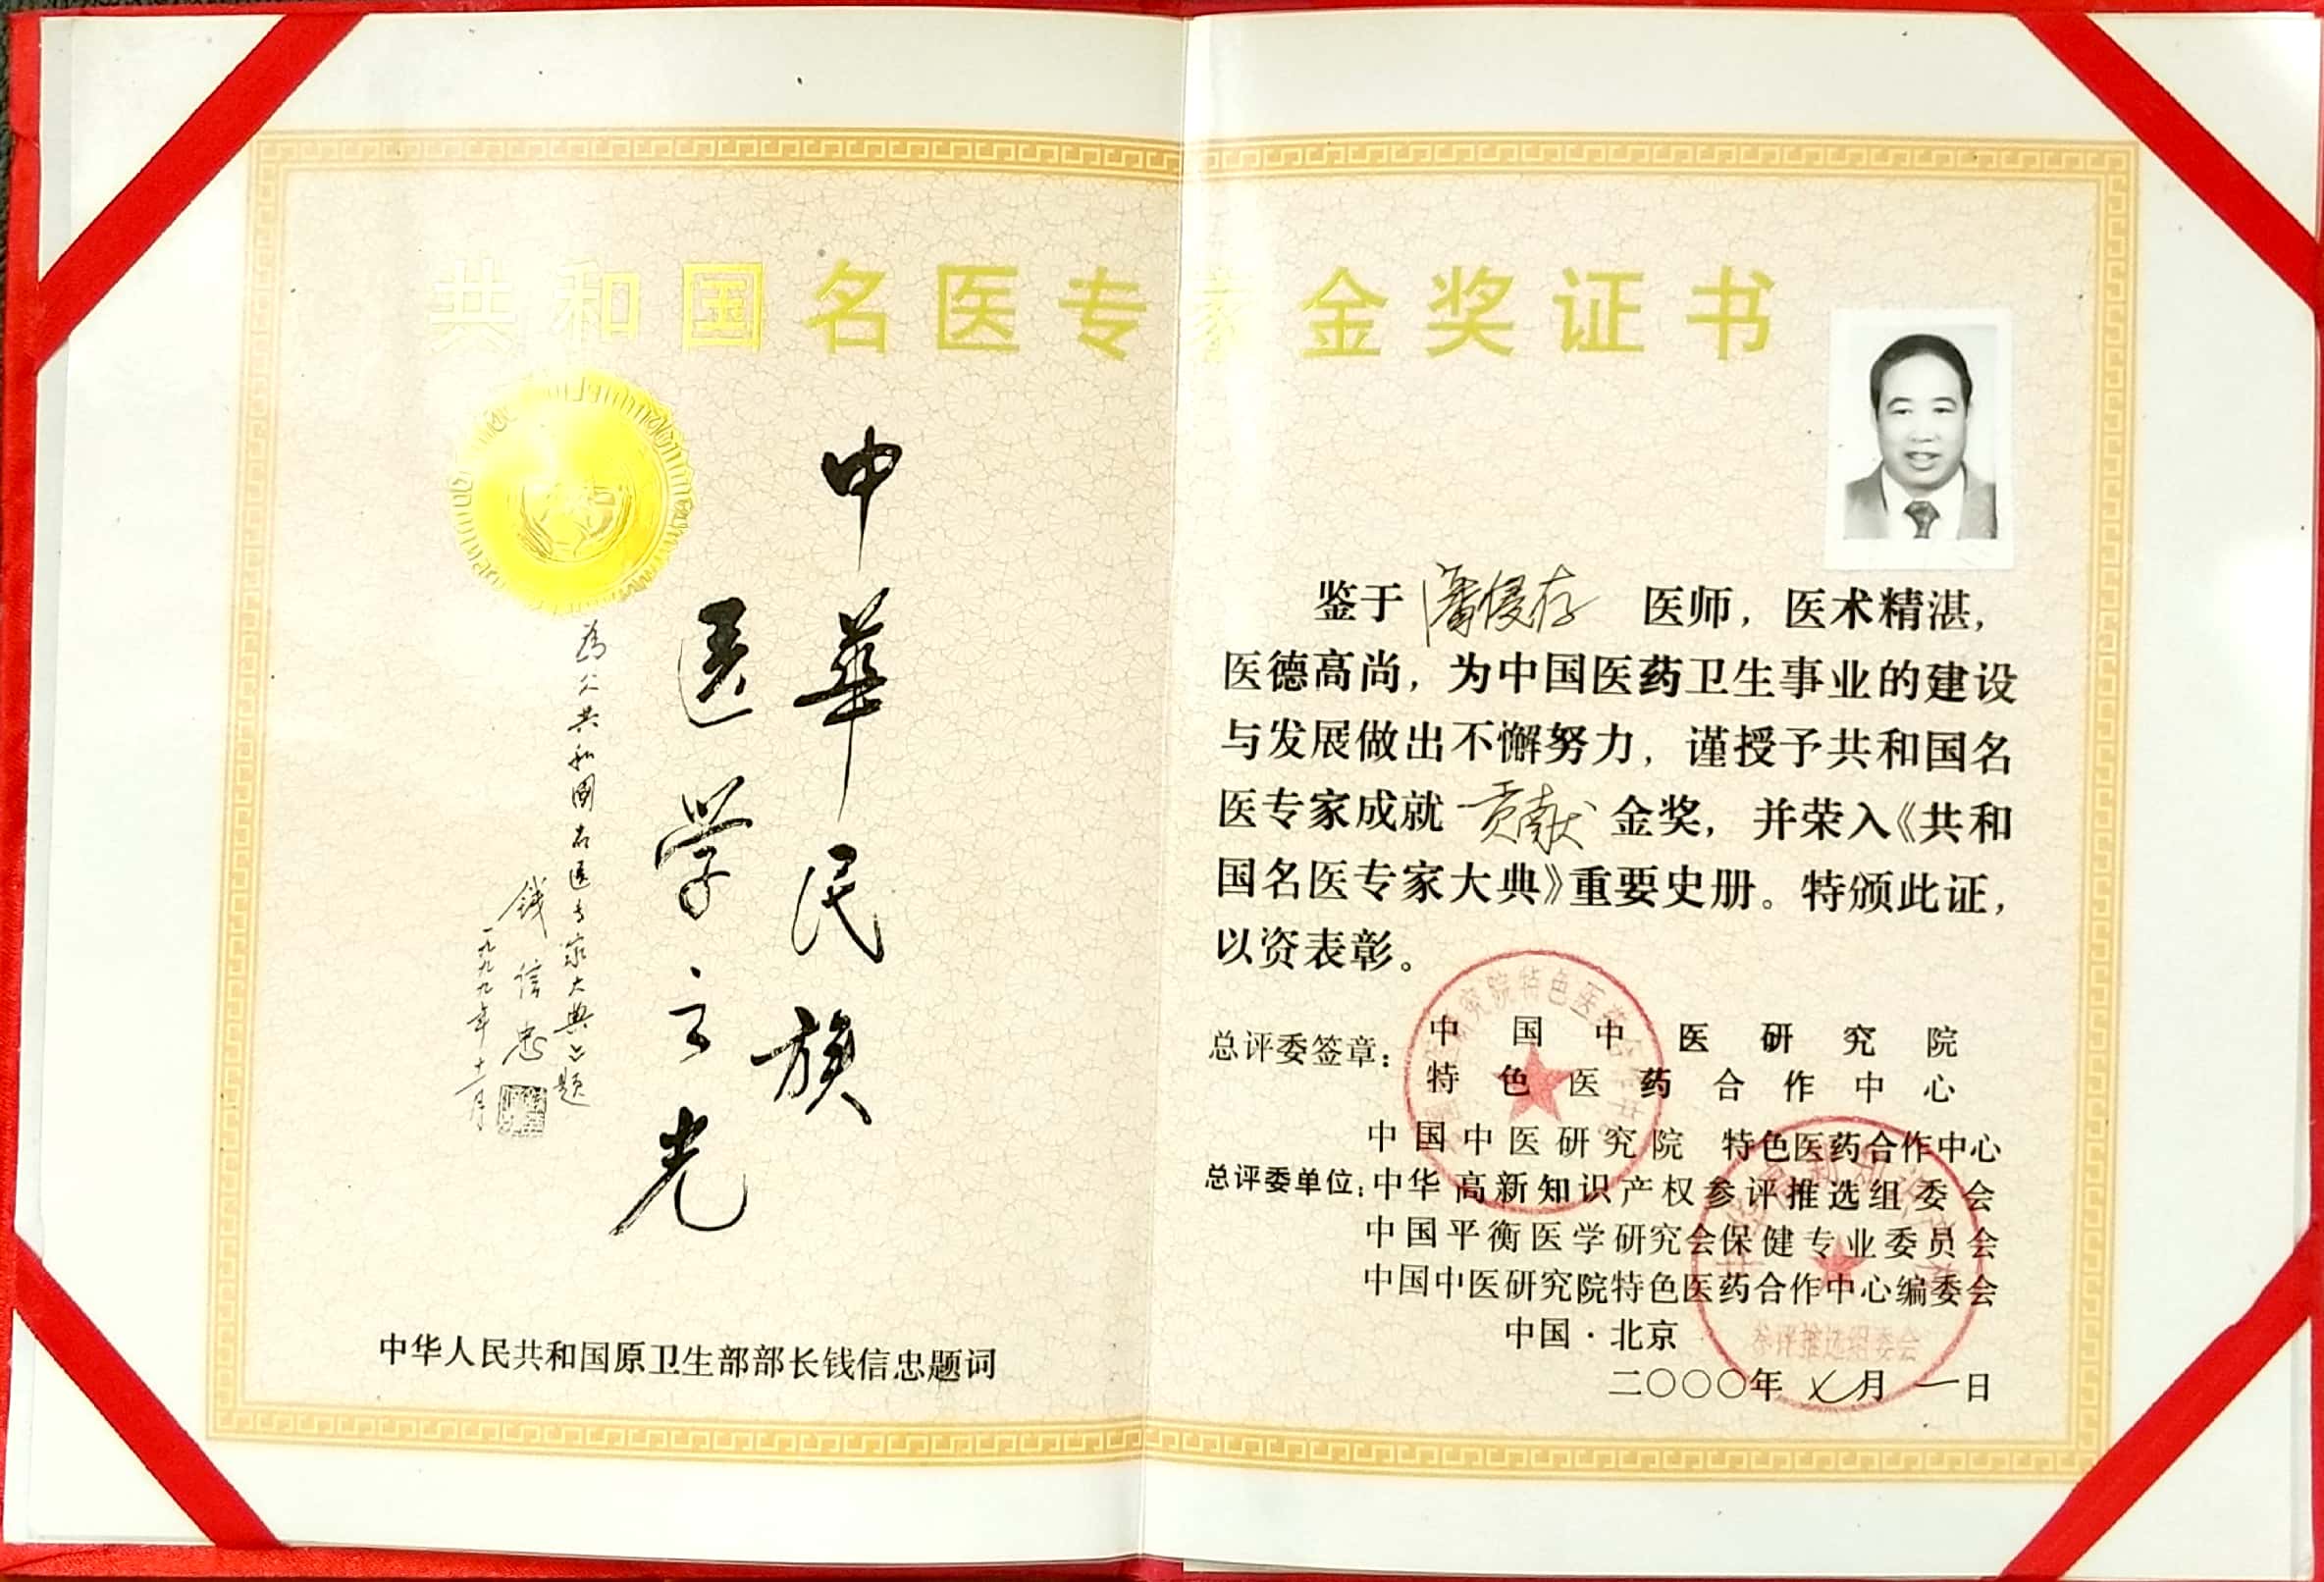 共和国名医专家金奖证书
中华民族
医学之光
为《共和国名医专家大典》题
钱信忠
一九九九年十二月
中华人民共和国原卫生部部长钱信忠题词
鉴于 潘侵存 医师，医术精湛，
医德高尚，为中国医药卫生事业的建设
与发展做出不懈努力，谨授予共和国名
医专家成就 贡献 金奖，并荣入《共和
国名医专家大典》重要史册。特颁此证，
以资表彰。
总评委签章：中国中医研究院
特色医药合作中心
中国中医研究院 特色医药合作中心
总评委单位：中华高新知识产权参评推选组委会
中国平衡医学研究会保健专业委员会
中国中医研究院特色医药合作中心编委会
中国·北京
二〇〇〇年 七月 一日
参评推选组委会